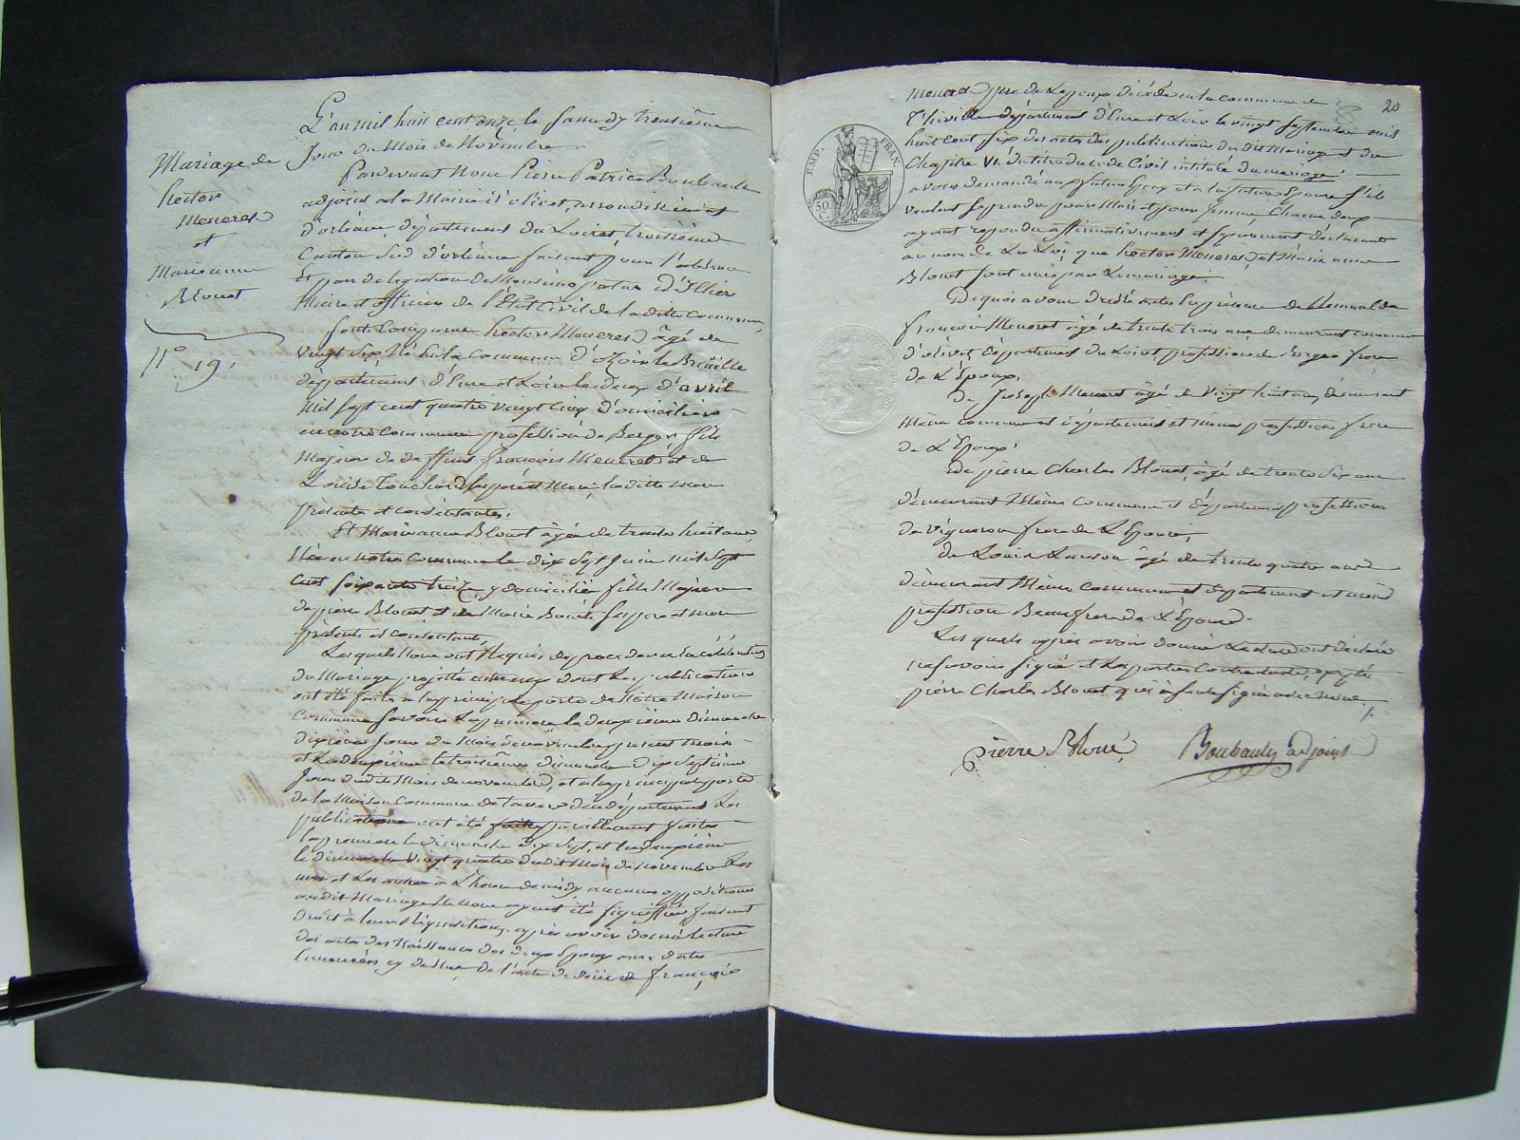 Mariage de
hector
Meneret
et
Marianne
Blouet
N.° 19,
L'an mil huit cent onze, le samedy trentième
Jour du Mois de Novembre
Pardevant Nous Pierre Patrice Boubault
adjoint a la Mairie d'olivet, arrondissement
d'orléans, département du Loiret, troisième
Canton Sud d'orléans faisant pour l'absence
Et par délégation de Monsieur
Maire et officier de l'État Civil de la ditte Commune,
sont comparus hector Meneret âgé de
vingt six Né en la Commune d'ozoir le Breuille
département d'Eure et Loir le deux d'avril
Mil sept cent quatre vingt cinq domicilié
en notre Commune profession de Berger fils
Majeur de deffunt françois Meneret et de
Louise Touchard ses père et Mère, la ditte Mère
présente et consentante.
Et Marie anne Blouet âgée de trente huit ans
Née en notre Commune le dix sept Juin mil sept
cent soixante treize, y domiciliée fille Majeure
de pierre Blouet et de Marie ses père et mère
présents et consentants,
Lesquels Nous ont requis de procéder à la célébration
du Mariage projetté entre eux dont les publications
ont été faites à la principale porte de Notre Maison
Commune savoir la première le deuxième dimanche
dixième jour du Mois de novembre présent mois
et la deuxième le troisième dimanche dix septième
Jour dudit Mois de novembre, et à la principale porte
de la Maison Commune de dudit département Les
publications ont été faites pareillement faites
la première le dimanche dix sept, et la deuxième
le dimanche vingt quatre dudit Mois de Novembre Les
unes et Les autres à L'heure de midy aucune opposition
audit Mariage Ne Nous ayant été signiffiée faisant
droit à leurs réquisitions, après avoir donné lecture
des actes des Naissances des deux Epoux aux dates
énoncées cy dessus, de l'acte de décès de françois
20
Meneret père de L'époux décédé en la commune de
département d'Eure et Loir le vingt septembre mil
huit cent six des actes des publications du dit Mariage et du
Chapitre VI du titre du Code Civil intitulé du mariage
avons demandé au futur Epoux et à la future Epouse s'ils
veulent se prendre pour Mari et pour femme Chacun deux
ayant repondu affirmativement et séparément déclarons
au nom de La Loi, que hector Meneret, et Marie anne
Blouet sont unis par Le mariage.
EMP. FRAN.
De quoi avons dressé acte En présence de
françois Meneret âgé de trente trois ans, demeurant commune
d'olivet, département du Loiret profession de Berger frère
de L'Époux.
De Joseph Meneret âgé de vingt huit ans, demeurant
Même commune et département et même profession frère
de L'Époux.
De pierre Charles Blouet, âgé de trente six ans
demeurant Même Commune et département, profession
de vigneron frère de L'Epouse,
de Louis âgé de trente quatre ans
demeurant Même commune et département et même
profession Beaufrère de L'Epouse.
Les quels après avoir donné Lecture ont déclaré
ne savoir signer et Les parties Contractantes, excepté
pierre Charles Blouet qui à signé avec nous ./.
pierre Bloué Boubault adjoint